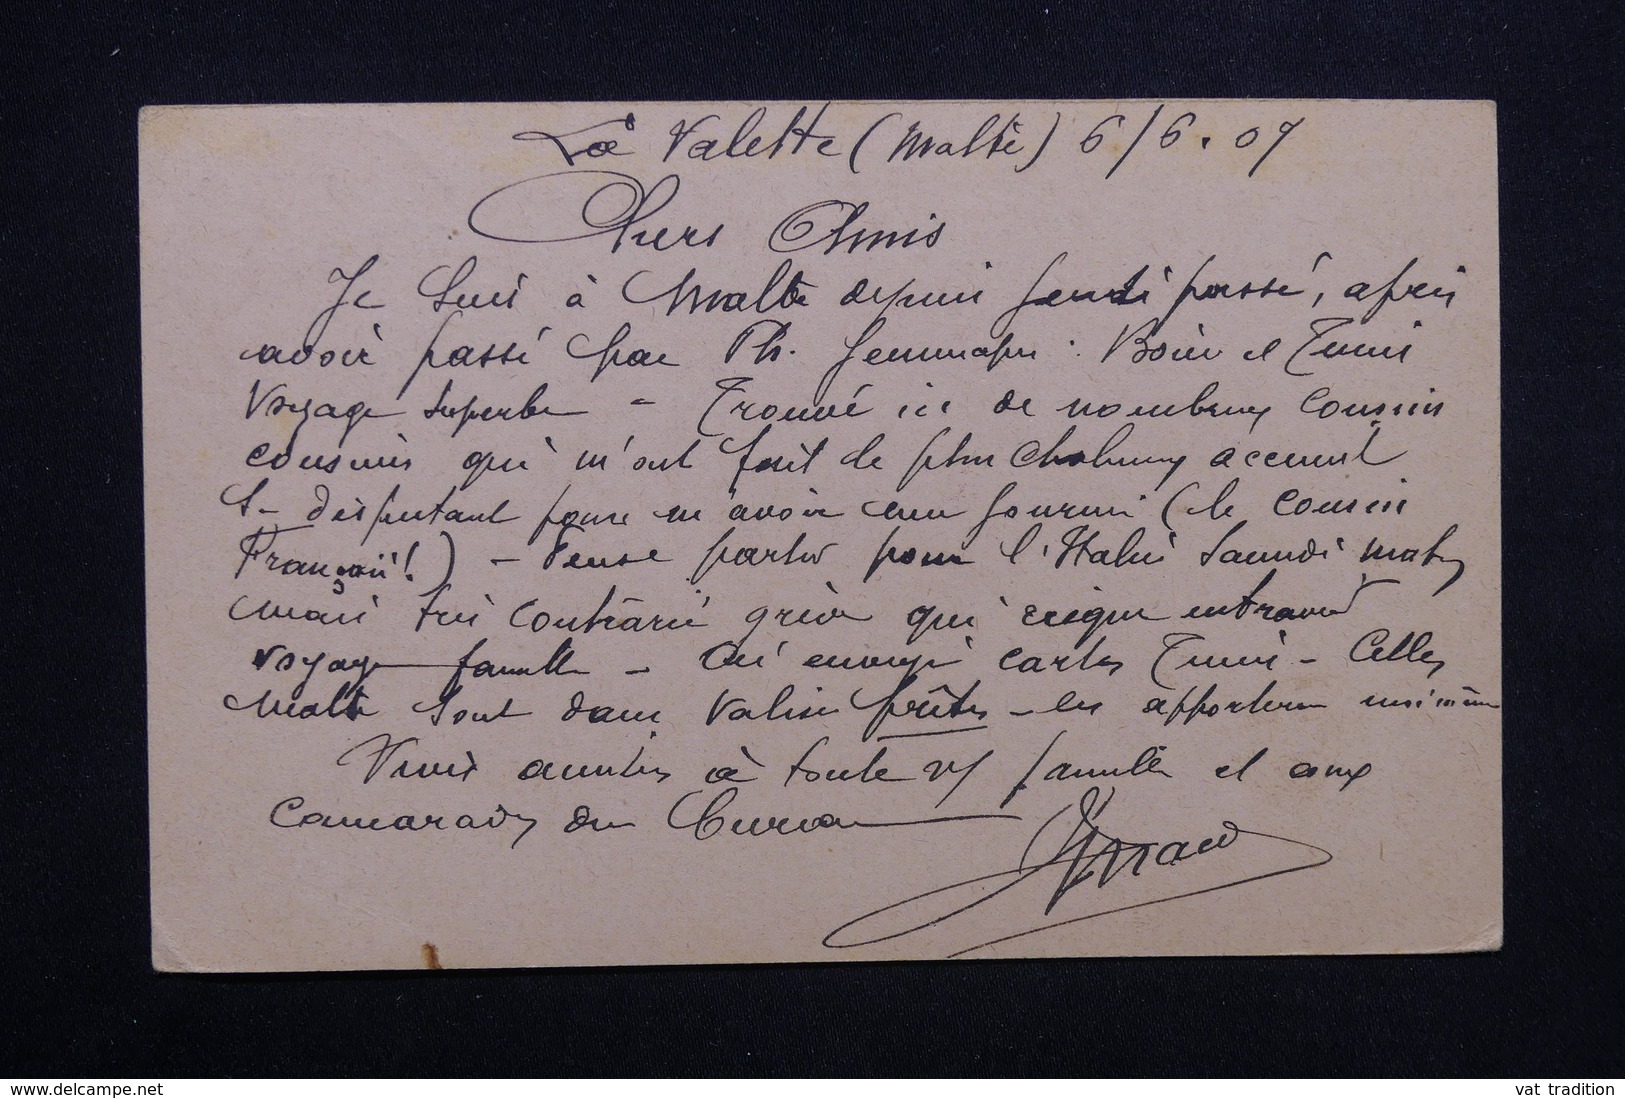 La Valette (Malte) 6/6.07
Chers Amis
Je suis à Malte depuis Jeudi passé, après
avoir passé par Ph. Jemmapes. Bône et Tunis
Voyage superbe - Trouvé ici de nombreux cousins
cousines qui m'ont fait le plus chaleureux accueil
se disputant pour m'avoir (le cousin
Français!) - Pense partir pour l'Italie Samedi matin
mais très contrarié grève qui entraver
voyage famille - Ai envoyé cartes Tunis - Celles
Malte sont dans valise prêtes - les apporterai moi même
Mes amitiés à toute famille et aux
Camarades du Bureau
www.delcampe.net
vat tradition